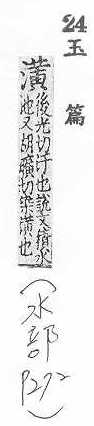 24
玉篇
潢後光切汙也説文積水
池又胡曠切染潢也
(水部
P272)